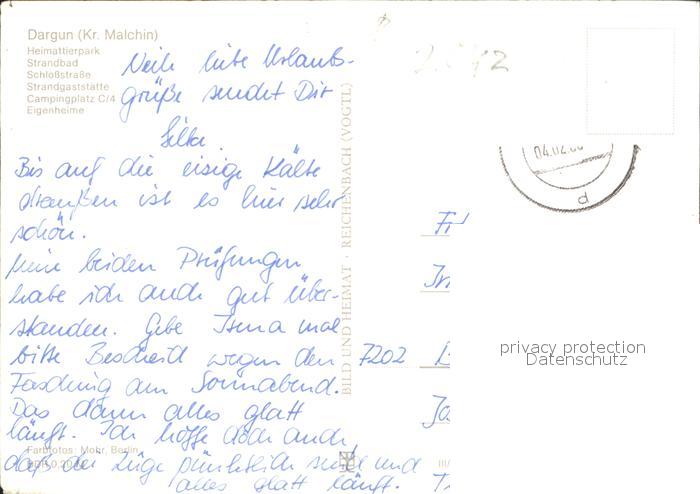 Dargun (Kr. Malchin)
Heimattierpark
Strandbad
Schloßstraße
Strandgaststätte
Campingplatz C/4
Eigenheime
liebe Urlaubs-
grüße sendet Dir
Silke.
Bis auf die eisige Kälte
draußen ist es hier sehr
schön.
Meine beiden Prüfungen
habe ich auch gut über-
standen. Gebe mal
bitte Bescheid wegen den
Fasching am Sonnabend.
Das dann alles glatt
läuft. Ich hoffe doch auch,
daß die Züge pünktlich sind und
alles glatt läuft.
Farbfotos: Mohr, Berlin
BILD UND HEIMAT · REICHENBACH (VOGTL)
04.02.80
7202
privacy protection
Datenschutz